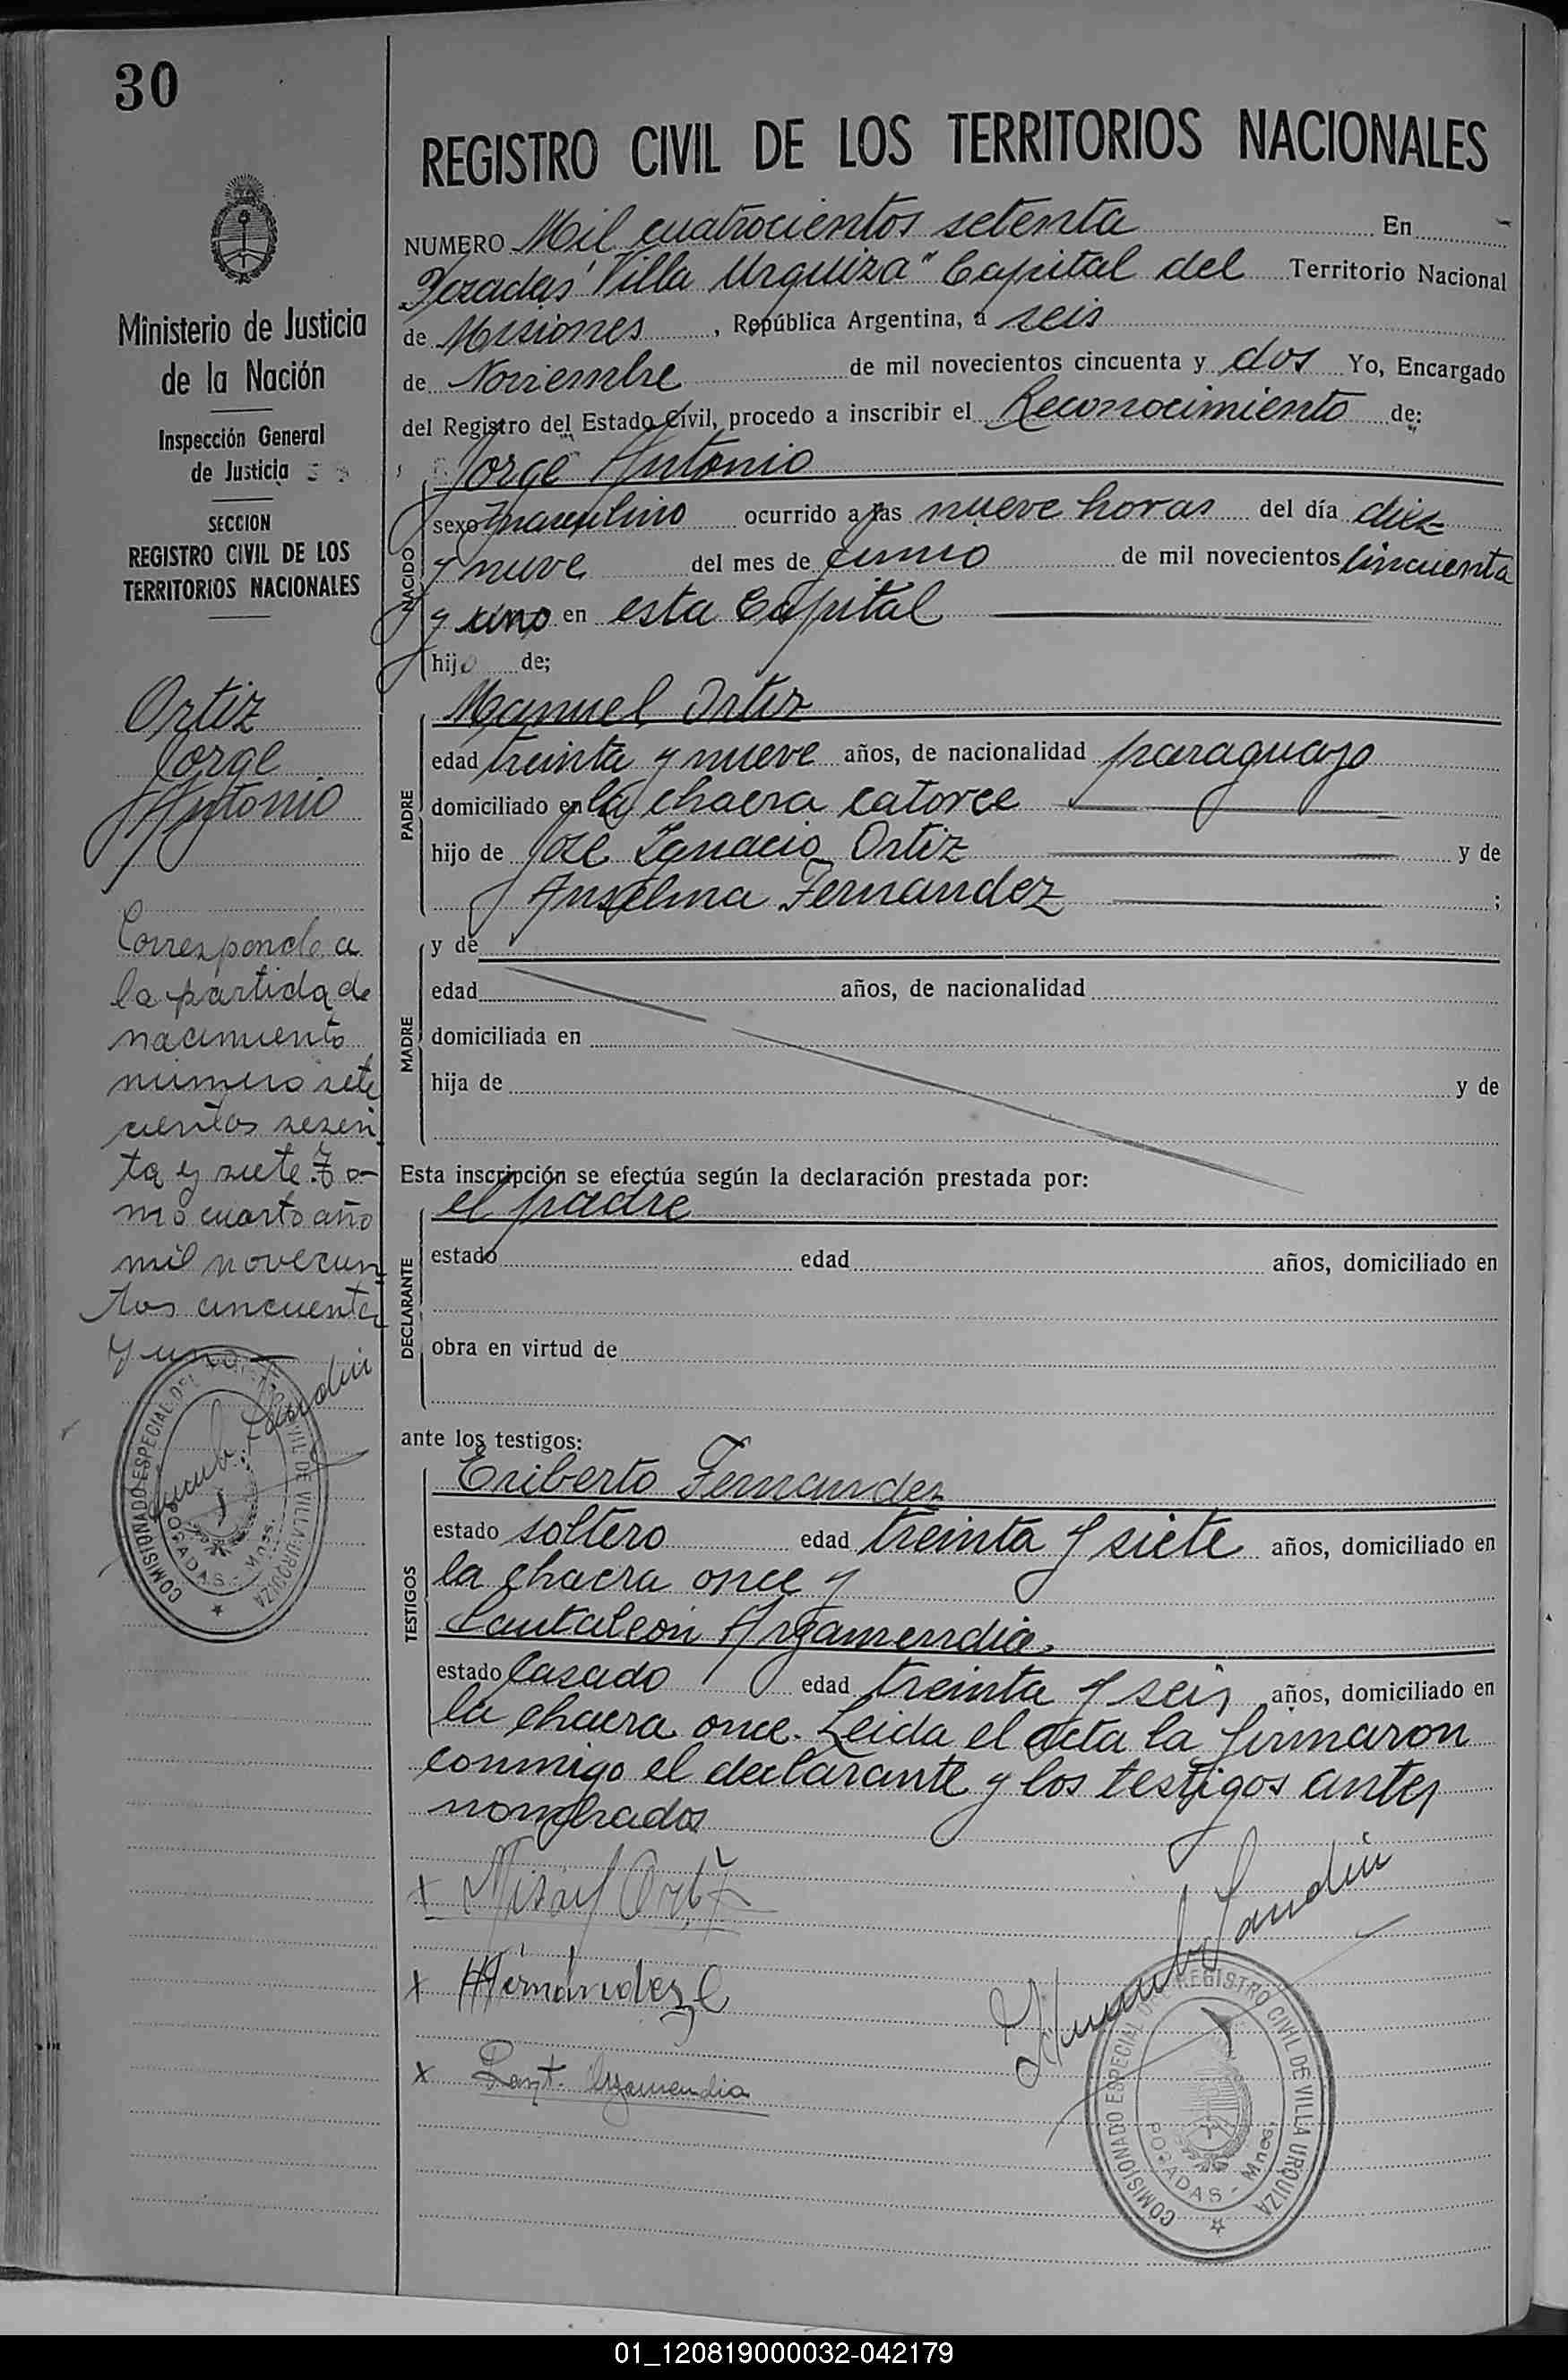 30
REGISTRO CIVIL DE LOS TERRITORIOS NACIONALES
Ministerio de Justicia
de la Nación
Inspección General
de Justicia
SECCION
REGISTRO CIVIL DE LOS
TERRITORIOS NACIONALES
Ortiz
Jorge
Antonio
Corresponde a
la partida de
nacimiento
numero sete
cientos sesen
ta y siete To-
mo cuarto año
mil novecien
tos cincuenta
y uno.
COMISIONADO ESPECIAL DEL CIVIL DE VILLA URQUIZA
POSADAS - Mnes.
NUMERO Mil cuatrocientos setenta En
Posadas "Villa Urquiza" Capital del Territorio Nacional
de Misiones, República Argentina, a seis
de Noviembre de mil novecientos cincuenta y dos Yo, Encargado
del Registro del Estado Civil, procedo a inscribir el Reconocimiento de:
Jorge Antonio
NACIDO
sexo masculino ocurrido a las nueve horas del día diez
y nueve del mes de Junio de mil novecientos cincuenta
y uno en esta Capital
hijo de;
PADRE
Manuel Ortiz
edad treinta y nueve años, de nacionalidad paraguayo
domiciliado en la chacra catorce
hijo de José Ignacio Ortiz y de
Anselma Fernandez ;
MADRE
y de
edad años, de nacionalidad
domiciliada en
hija de y de
Esta inscripción se efectúa según la declaración prestada por:
DECLARANTE
el padre
estado edad años, domiciliado en
obra en virtud de
ante los testigos:
TESTIGOS
Eriberto Fernandez
estado soltero edad treinta y siete años, domiciliado en
la chacra once y
Pantaleón Argamendia.
estado casado edad treinta y seis años, domiciliado en
la chacra once. Leida el acta la firmaron
conmigo el declarante y los testigos antes
nombrados
x Ortiz
x
x Pant. Argamendia
COMISIONADO ESPECIAL DEL REGISTRO CIVIL DE VILLA URQUIZA
POSADAS - Mnes.
01_120819000032-042179